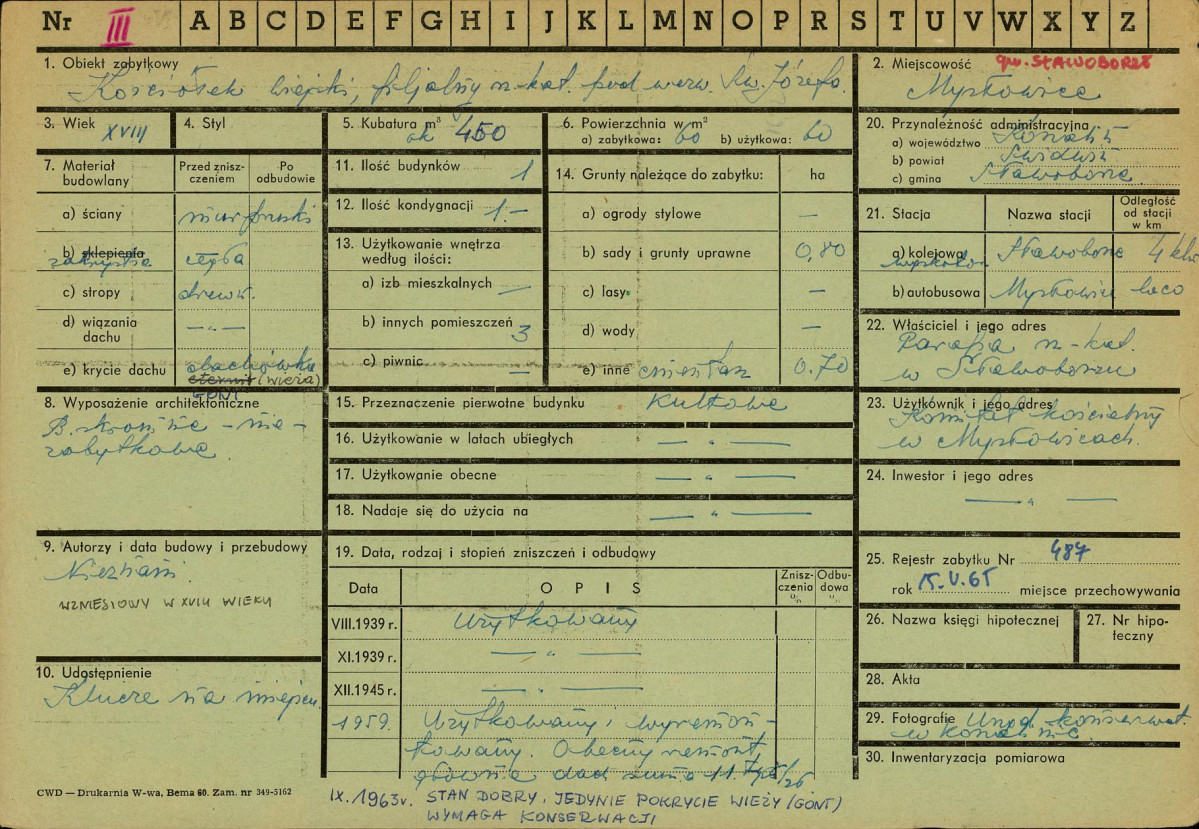 Nr III A B C D E F G H I J K L M N O P R S T U V W X Y Z
1. Obiekt zabytkowy
Kościółek wiejski, filjalny rz-kat. pod wezw. Św. Józefa.
2. Miejscowość gm. SŁAWOBORZE
Mysłowice
3. Wiek XVIII
4. Styl
5. Kubatura m³
ok 450
6. Powierzchnia w m²
a) zabytkowa: 60 b) użytkowa: 60
20. Przynależność administracyjna
a) województwo Koszalin
b) powiat Świdwin
c) gmina Sławoborze
7. Materiał budowlany
Przed zniszczeniem
Po odbudowie
a) ściany mur pruski
b) sklepienia
zakrystia cegła
c) stropy drewn.
d) wiązania dachu —„—
e) krycie dachu dachówka
eternit (wieża)
GONT
11. Ilość budynków 1
12. Ilość kondygnacji 1.-
13. Użytkowanie wnętrza według ilości:
a) izb mieszkalnych —
b) innych pomieszczeń 3
c) piwnic —
14. Grunty należące do zabytku: ha
a) ogrody stylowe —
b) sady i grunty uprawne 0,80
c) lasy: —
d) wody —
e) inne cmentarz 0.70
21. Stacja Nazwa stacji Odległość od stacji w km
a) kolejowa Sławoborze 4 klm
b) autobusowa Mysłowice loco
22. Właściciel i jego adres
Parafia rz-kat.
w Sławoborzu
8. Wyposażenie architektoniczne
B. skromne - nie-
zabytkowe.
15. Przeznaczenie pierwotne budynku Kultowe
16. Użytkowanie w latach ubiegłych — „ —
17. Użytkowanie obecne — „ —
18. Nadaje się do użycia na — „ —
23. Użytkownik i jego adres
Komitet kościelny
w Mysłowicach.
24. Inwestor i jego adres
— „ —
9. Autorzy i data budowy i przebudowy
Nieznani.
WZNIESIONY W XVIII WIEKU
10. Udostępnienie
Klucze na miejscu.
19. Data, rodzaj i stopień zniszczeń i odbudowy
Data OPIS Zniszczenia % Odbudowa %
VIII.1939 r. Użytkowany
XI.1939 r. — „ —
XII.1945 r. — „ —
1959. Użytkowany, wyremon-
towany. Obecny remont,
głównie dach
25. Rejestr zabytku Nr 487
rok 15.V.65 miejsce przechowywania
26. Nazwa księgi hipotecznej
27. Nr hipoteczny
28. Akta
29. Fotografie Urząd konserwat.
w Koszalinie.
30. Inwentaryzacja pomiarowa
CWD — Drukarnia W-wa, Bema 60. Zam. nr 349-5162
IX. 1963r. STAN DOBRY, JEDYNIE POKRYCIE WIEŻY (GONT)
WYMAGA KONSERWACJI